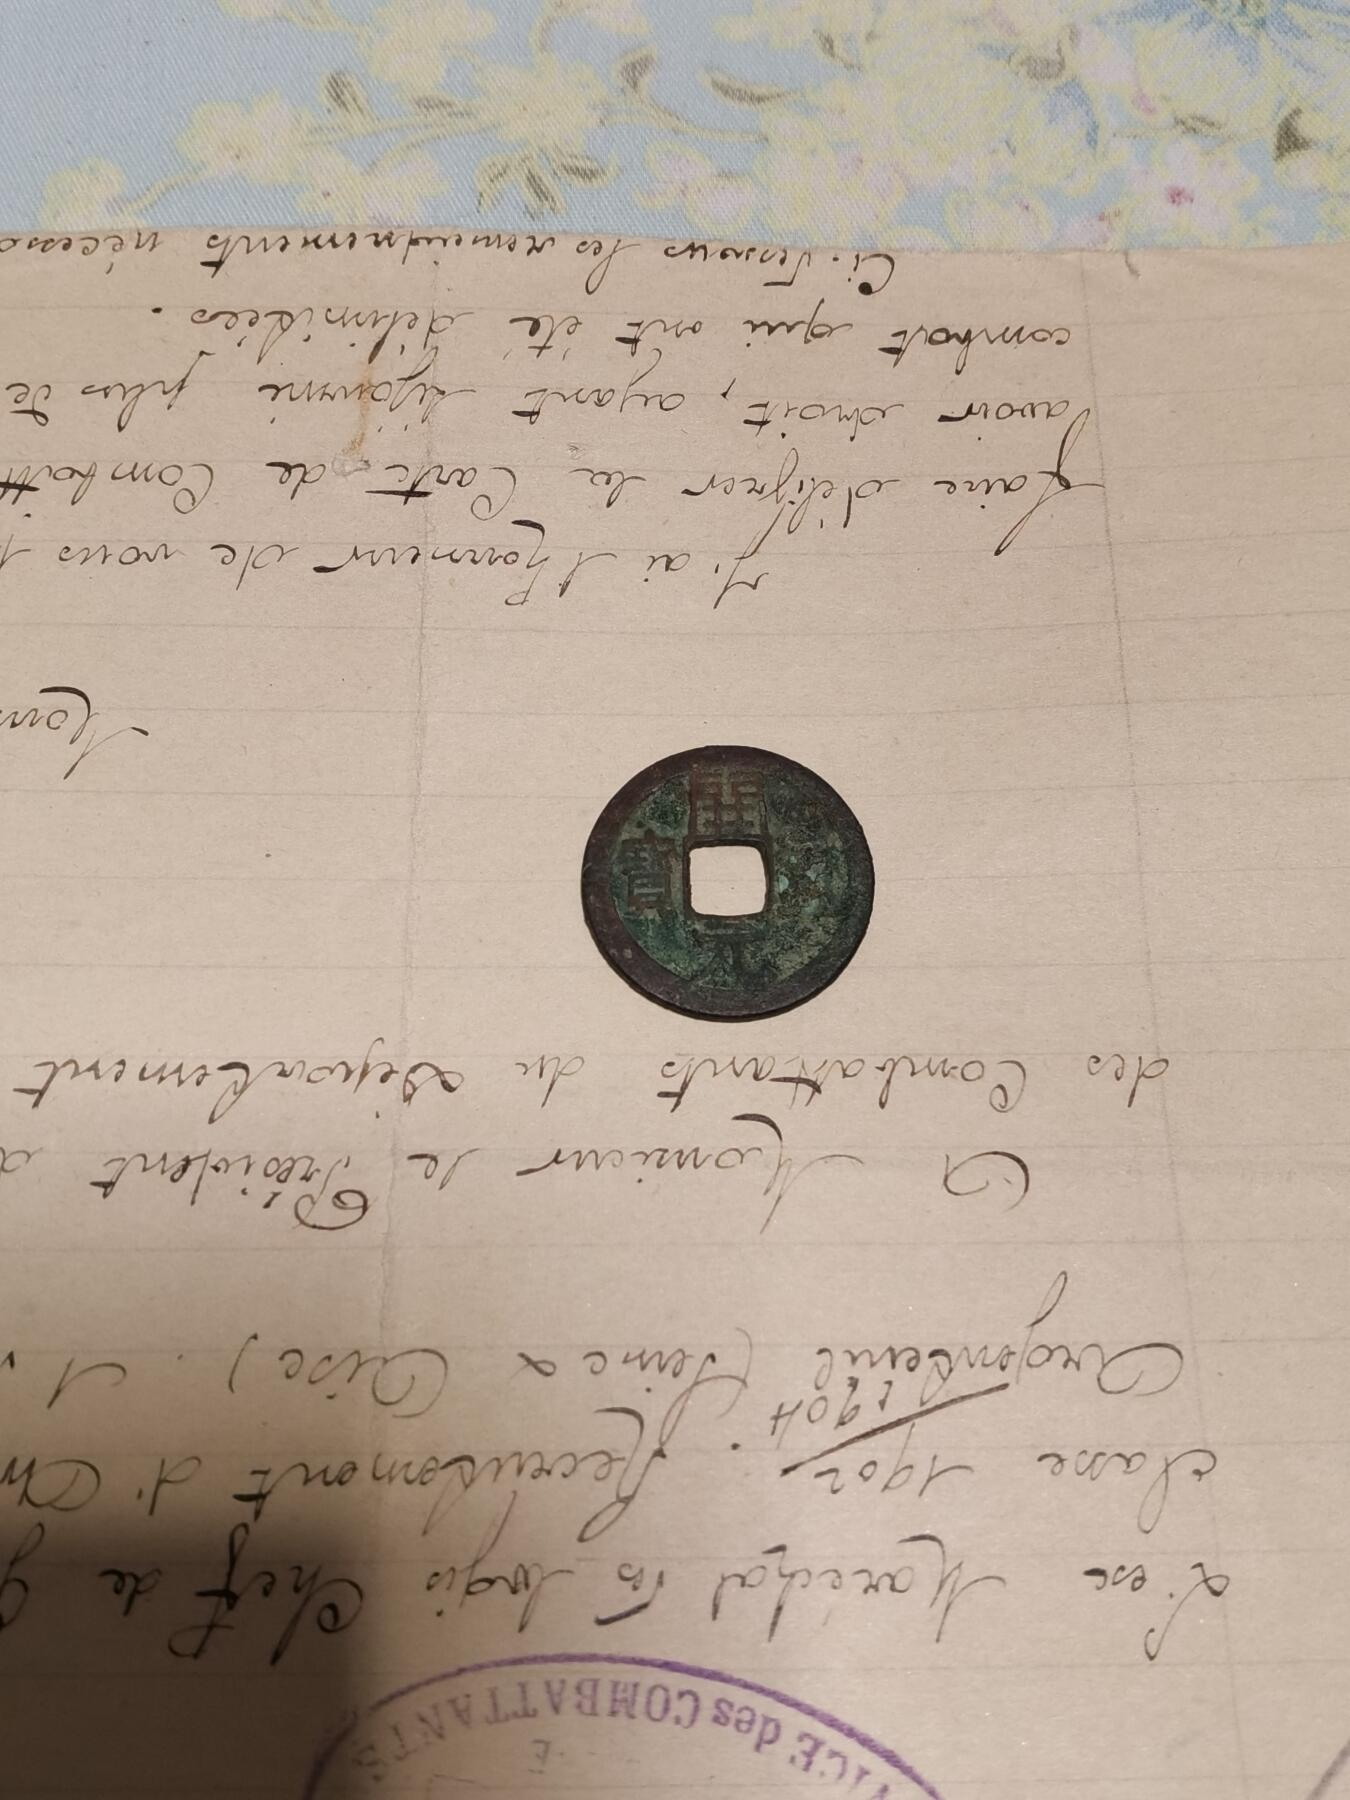 VICE des COMBATTANTS
L'ex Maréchal des logis Chef de g
classe 1902 Recrutement d'
1904
Argenteuil (Seine & Oise).
A Monsieur le Président d
des Combattants du Département
開元寶
Mons
J'ai l'honneur de vous p
faire délivrer la Carte de Combatt
avoir droit, ayant séjourné plus de
combat qui ont été délimitées.
Ci-dessous les renseignements nécessa